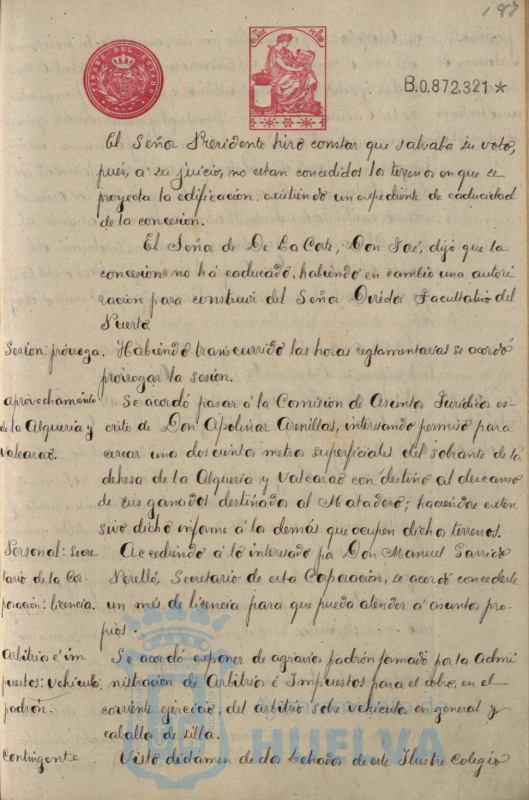 187
TIMBRE DEL ESTADO
B.0.872,321*
El Señor Presidente hizo constar que salvaba su voto,
pues, a su juicio, no estan concedidos los terrenos en que se
proyecta la edificacion, existiendo un expediente de caducidad
de la concesion.
El Señor de De La Corte, Don José, dijo que la
concesion no há caducado, habiendo en cambio una autori-
zacion para construir del Señor Director Facultativo del
Puerto.
Sesion: prórroga. Habiendo transcurrido las horas reglamentarias se acordó
prorrogar la sesion.
Aprovechamiento Se acordó pasar á la Comision de Asuntos Juridicos es-
de la Alqueria y crito de Don Apolinar Arenillas, interesando permiso para
Valcaras. cercar unos doscientos metros superficiales del sobrante de la
dehesa de la Alquería y Valcaras con destino al descanso
de sus ganados destinados al Matadero; haciendose exten-
sivo dicho informe á los demás que ocupen dichos terrenos.
Personal: Secre- Accediendo á lo interesado por Don Manuel Garrido
tario de la Cor- Perelló, Secretario de esta Coporacion, se acordó concederle
poracion: licencia. un més de licencia para que pueda atender á asuntos pro-
pios.
Arbitrios é im Se acordó exponer de agravios padrón formado por la Admi
puestos: vehiculos: nistracion de Arbitrios é Impuestos para el cobro, en el
padrón. corriente ejercicio, del arbitrio sobre vehiculos en general y
caballos de silla.
Contingente Visto dictamen de dos Letrados de este Ilustre Colegio
HUELVA